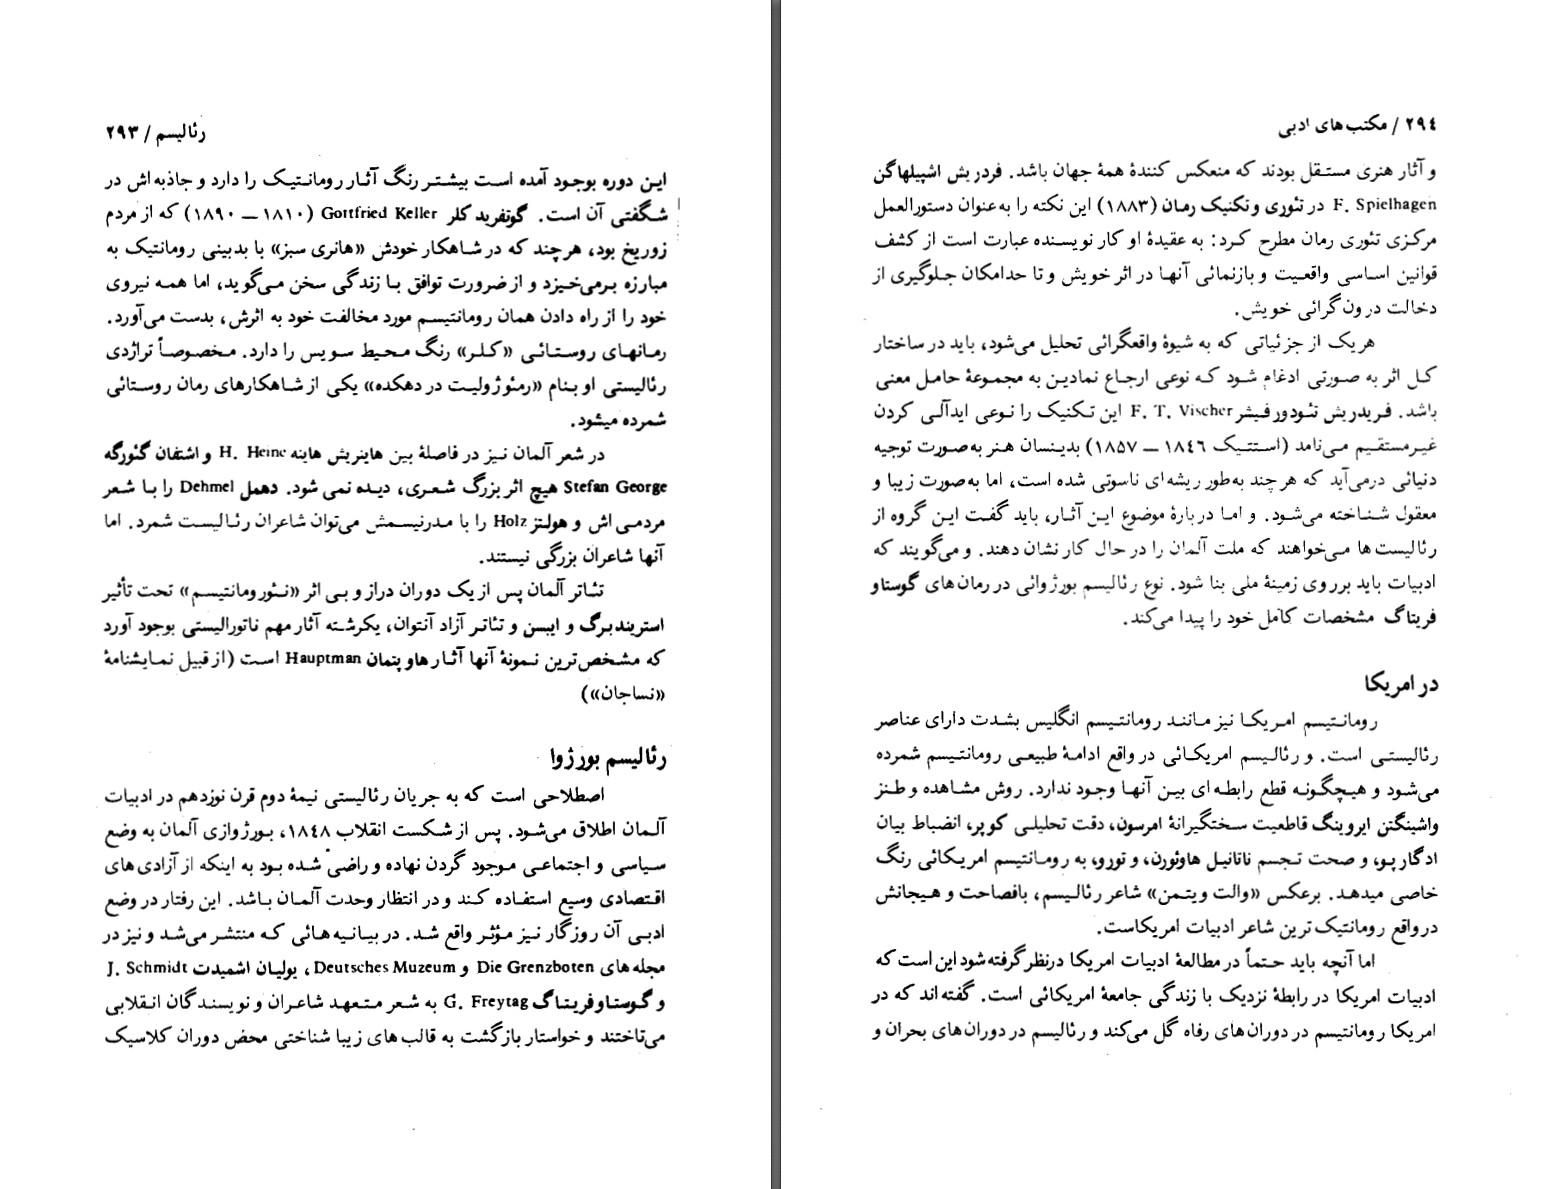 رئالیسم / ۲۹۳
این دوره بوجود آمده است بیشتر رنگ آثار رومانتیک را دارد و جاذبه اش در
شگفتی آن است. گوتفرید کلر Gottfried Keller (۱۸۱۰ — ۱۸۹۰) که از مردم
زوریخ بود، هرچند که در شاهکار خودش «هانری سبز» با بدبینی رومانتیک به
مبارزه برمی‌خیزد و از ضرورت توافق با زندگی سخن می‌گوید، اما همه نیروی
خود را از راه دادن همان رومانتیسم مورد مخالفت خود به اثرش، بدست می‌آورد.
رمانهای روستائی «کلر» رنگ محیط سویس را دارد. مخصوصاً تراژدی
رئالیستی او بنام «رمئوژولیت در دهکده» یکی از شاهکارهای رمان روستائی
شمرده میشود.
در شعر آلمان نیز در فاصلهٔ بین هاینریش هاینه H. Heine و اشتفان گئورگه
Stefan George هیچ اثر بزرگ شعری، دیده نمی شود. دهمل Dehmel را با شعر
مردمی اش و هولتز Holz را با مدرنیسمش می‌توان شاعران رئالیست شمرد. اما
آنها شاعران بزرگی نیستند.
تئاتر آلمان پس از یک دوران دراز و بی اثر «نئورومانتیسم» تحت تأثیر
استریندبرگ و ایبسن و تئاتر آزاد آنتوان، یکرشته آثار مهم ناتورالیستی بوجود آورد
که مشخص‌ترین نمونهٔ آنها آثار هاوپتمان Hauptman است (از قبیل نمایشنامهٔ
«نساجان»)
رئالیسم بورژوا
اصطلاحی است که به جریان رئالیستی نیمهٔ دوم قرن نوزدهم در ادبیات
آلمان اطلاق می‌شود. پس از شکست انقلاب ۱۸۴۸، بورژوازی آلمان به وضع
سیاسی و اجتماعی موجود گردن نهاده و راضی شده بود به اینکه از آزادی های
اقتصادی وسیع استفاده کند و در انتظار وحدت آلمان باشد. این رفتار در وضع
ادبی آن روزگار نیز مؤثر واقع شد. در بیانیه هائی که منتشر می‌شد و نیز در
مجله های Die Grenzboten و Deutsches Muzeum، یولیان اشمیدت J. Schmidt
و گوستاو فریتاگ G. Freytag به شعر متعهد شاعران و نویسندگان انقلابی
می‌تاختند و خواستار بازگشت به قالب های زیبا شناختی محض دوران کلاسیک
۲۹٤ / مکتب های ادبی
و آثار هنری مستقل بودند که منعکس کنندهٔ همهٔ جهان باشد. فردریش اشپیلهاگن
F. Spielhagen در تئوری و تکنیک رمان (۱۸۸۳) این نکته را به عنوان دستورالعمل
مرکزی تئوری رمان مطرح کرد: به عقیدهٔ او کار نویسنده عبارت است از کشف
قوانین اساسی واقعیت و بازنمائی آنها در اثر خویش و تا حدامکان جلوگیری از
دخالت درون گرائی خویش.
هریک از جزئیاتی که به شیوهٔ واقعگرائی تحلیل می‌شود، باید در ساختار
کل اثر به صورتی ادغام شود که نوعی ارجاع نمادین به مجموعهٔ حامل معنی
باشد. فریدریش تئودورفیشر F. T. Vischer این تکنیک را نوعی ایدآلی کردن
غیرمستقیم می‌نامد (استتیک ۱۸٤٦ — ۱۸۵۷) بدینسان هنر به‌صورت توجیه
دنیائی درمی‌آید که هر چند به‌طور ریشه ای ناسوتی شده است، اما به‌صورت زیبا و
معقول شناخته می‌شود. و اما دربارهٔ موضوع این آثار، باید گفت این گروه از
رئالیست ها می‌خواهند که ملت آلمان را در حال کار نشان دهند. و می‌گویند که
ادبیات باید برروی زمینهٔ ملی بنا شود. نوع رئالیسم بورژوائی در رمان های گوستاو
فریتاگ مشخصات کامل خود را پیدا می‌کند.
در امریکا
رومانتیسم امریکا نیز مانند رومانتیسم انگلیس بشدت دارای عناصر
رئالیستی است. و رئالیسم امریکائی در واقع ادامهٔ طبیعی رومانتیسم شمرده
می‌شود و هیچگونه قطع رابطه ای بین آنها وجود ندارد. روش مشاهده و طنز
واشینگتن ایروینگ قاطعیت سختگیرانهٔ امرسون، دقت تحلیلی کوپر، انضباط بیان
ادگارپو، و صحت تجسم ناتانیل هاوئورن، و تورو، به رومانتیسم امریکائی رنگ
خاصی میدهد. برعکس «والت ویتمن» شاعر رئالیسم، بافصاحت و هیجانش
درواقع رومانتیک ترین شاعر ادبیات امریکاست.
اما آنچه باید حتماً در مطالعهٔ ادبیات امریکا درنظر گرفته شود این است که
ادبیات امریکا در رابطهٔ نزدیک با زندگی جامعهٔ امریکائی است. گفته اند که در
امریکا رومانتیسم در دوران های رفاه گل می‌کند و رئالیسم در دوران های بحران و